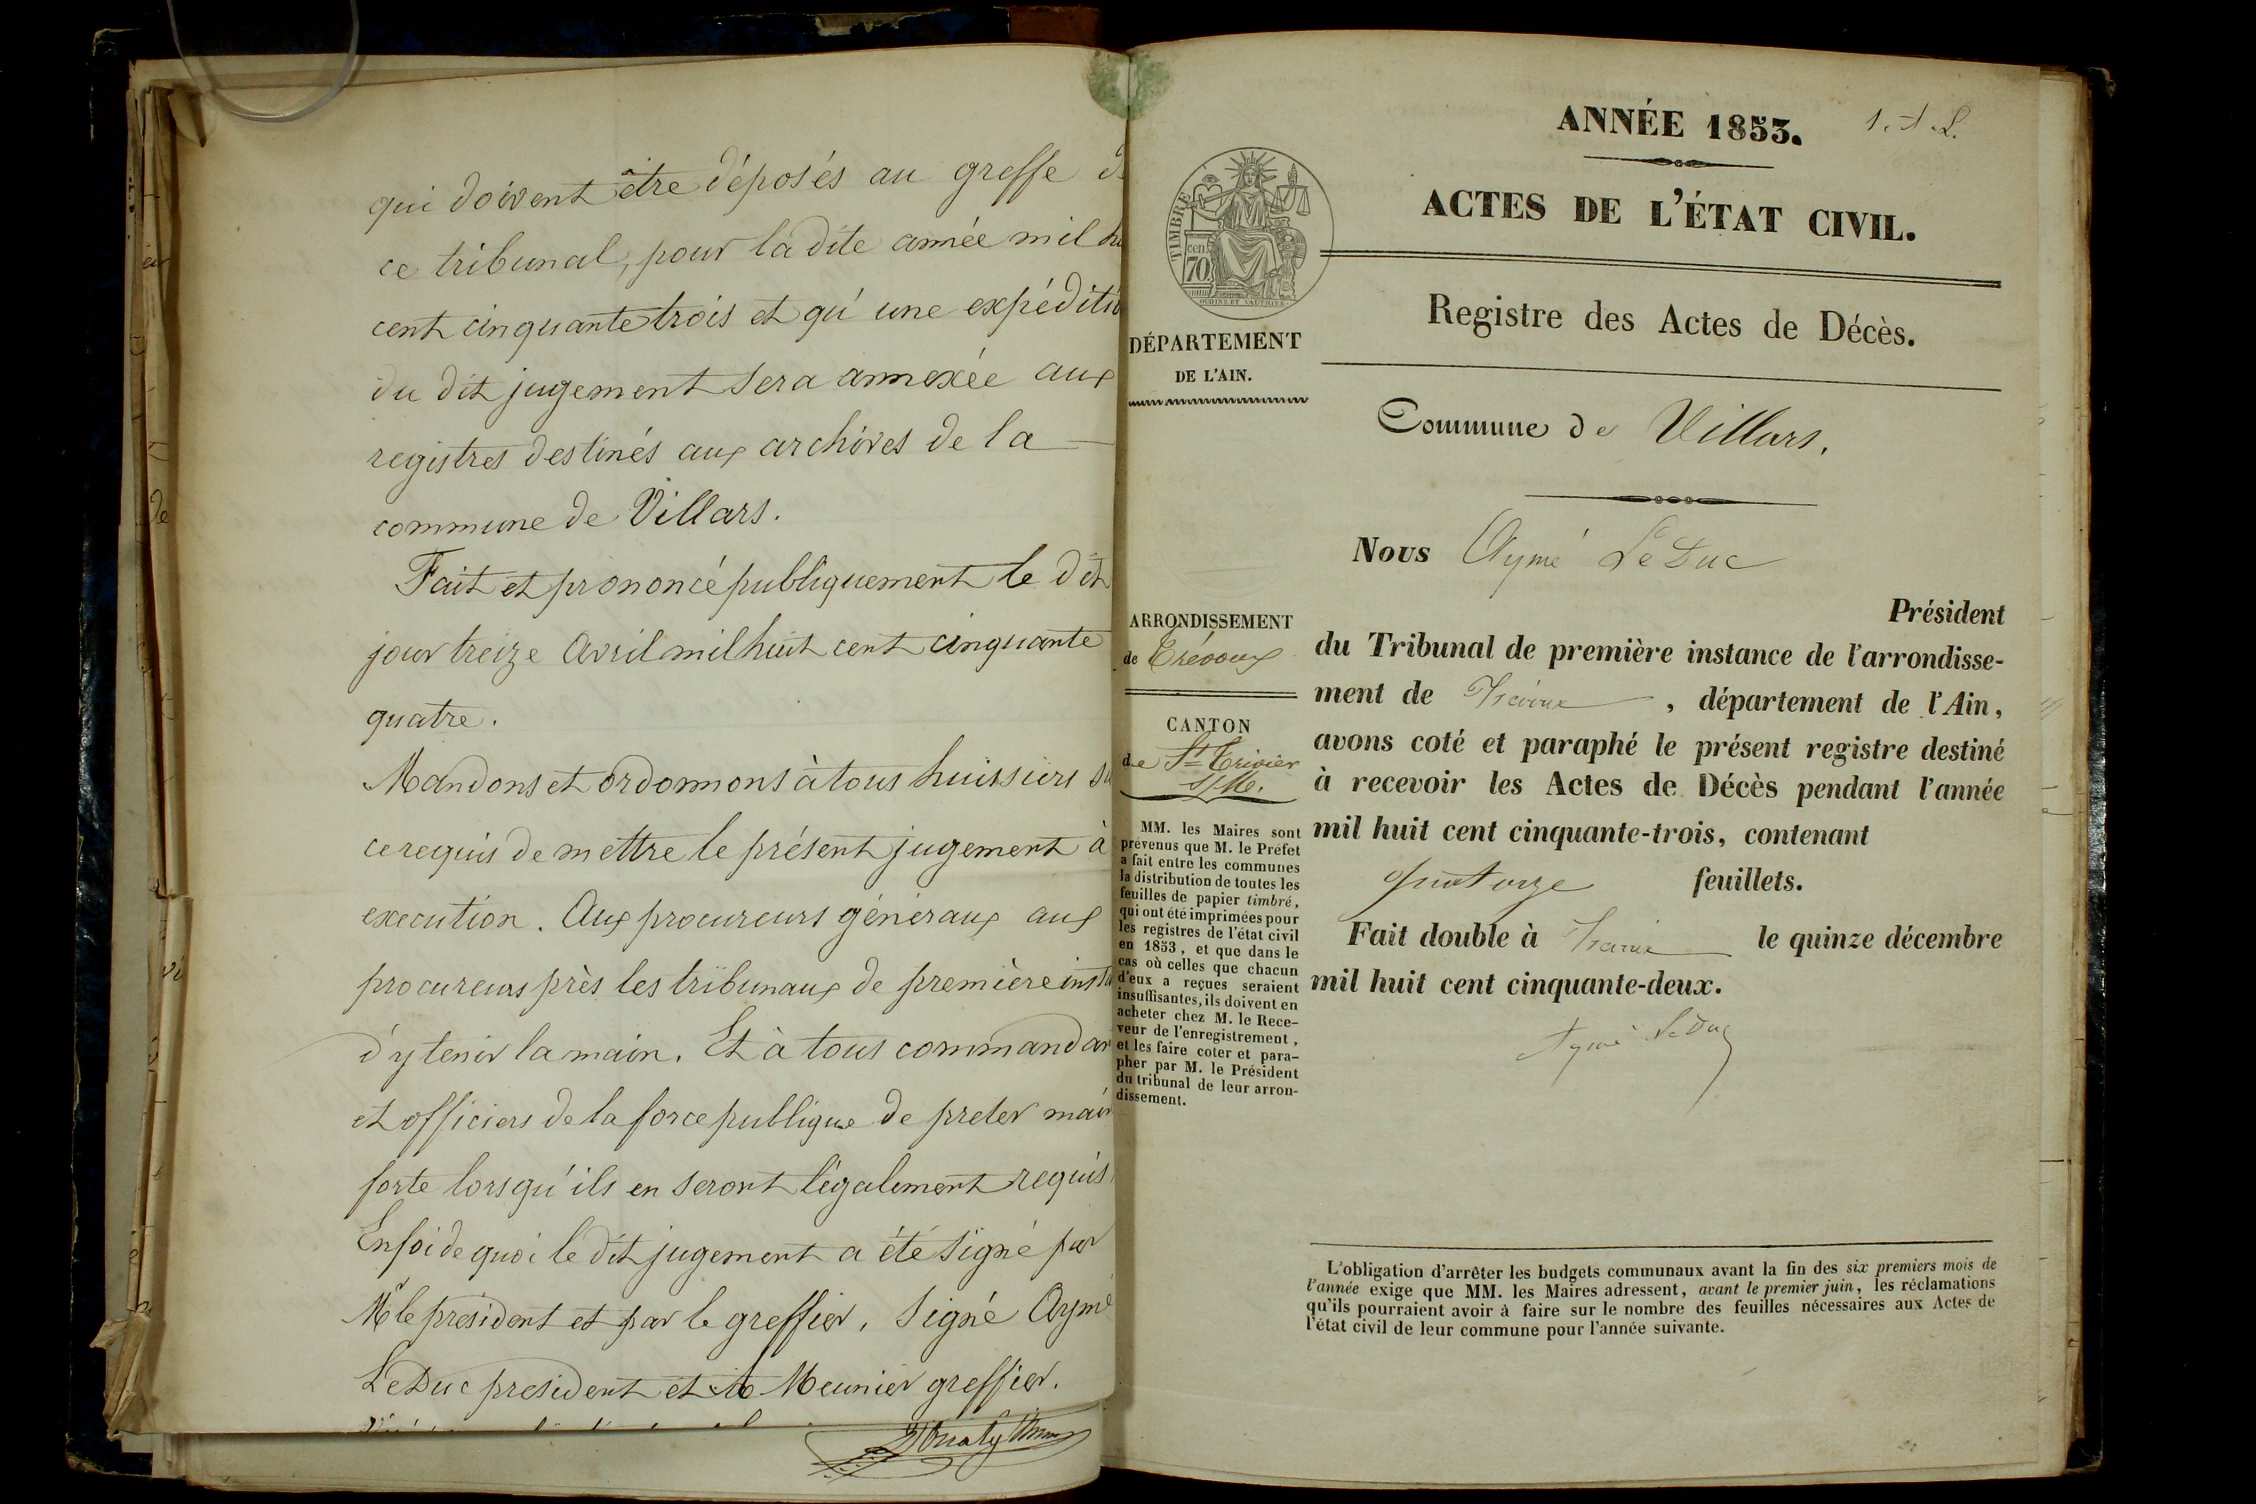 qui doivent être déposés au greffe d
ce tribunal, pour la dite année mil hu
cent cinquante trois et qu'une expéditio
du dit jugement sera annexée aux
registres destinés aux archives de la
commune de Villars.
Fait et prononcé publiquement le dit
jour treize Avril mil huit cent cinquante
quatre.
Mandons et ordonnons à tous huissiers su
ce requis de mettre le présent jugement à
execution. Aux procureurs généraux aux
procureurs près les tribunaux de première insta
d'y tenir la main. Et à tous commandan
et officiers de la force publique de preter main
forte lorsqu'ils en seront légalement requis.
En foi de quoi le dit jugement a été signé par
Mr le president et par le greffier. Signé Aymé
LeDuc president et Meunier greffier.
1. A. L.
ANNÉE 1853.
ACTES DE L'ÉTAT CIVIL.
TIMBRE
cen.
70
OUDINÉ ET
DÉPARTEMENT
DE L'AIN.
Registre des Actes de Décès.
Commune de Villars.
ARRONDISSEMENT
de Trévoux
CANTON
de St Trivier
S/M.
MM. les Maires sont
prévenus que M. le Préfet
a fait entre les communes
la distribution de toutes les
feuilles de papier timbré,
qui ont été imprimées pour
les registres de l'état civil
en 1853, et que dans le
cas où celles que chacun
d'eux a reçues seraient
insuffisantes, ils doivent en
acheter chez M. le Rece-
veur de l'enregistrement,
et les faire coter et para-
pher par M. le Président
du tribunal de leur arron-
dissement.
Nous Aymé Le Duc
Président
du Tribunal de première instance de l'arrondisse-
ment de Trévoux, département de l'Ain,
avons coté et paraphé le présent registre destiné
à recevoir les Actes de Décès pendant l'année
mil huit cent cinquante-trois, contenant
quatorze feuillets.
Fait double à Trévoux le quinze décembre
mil huit cent cinquante-deux.
Aymé Le Duc
L'obligation d'arrêter les budgets communaux avant la fin des six premiers mois de
l'année exige que MM. les Maires adressent, avant le premier juin, les réclamations
qu'ils pourraient avoir à faire sur le nombre des feuilles nécessaires aux Actes de
l'état civil de leur commune pour l'année suivante.